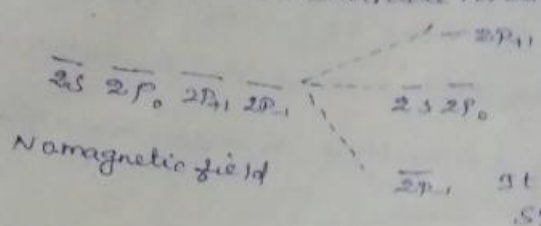 2P+1
2S 2P0 2P+1 2P-1
2S 2P0
No magnetic field
2P-1 It